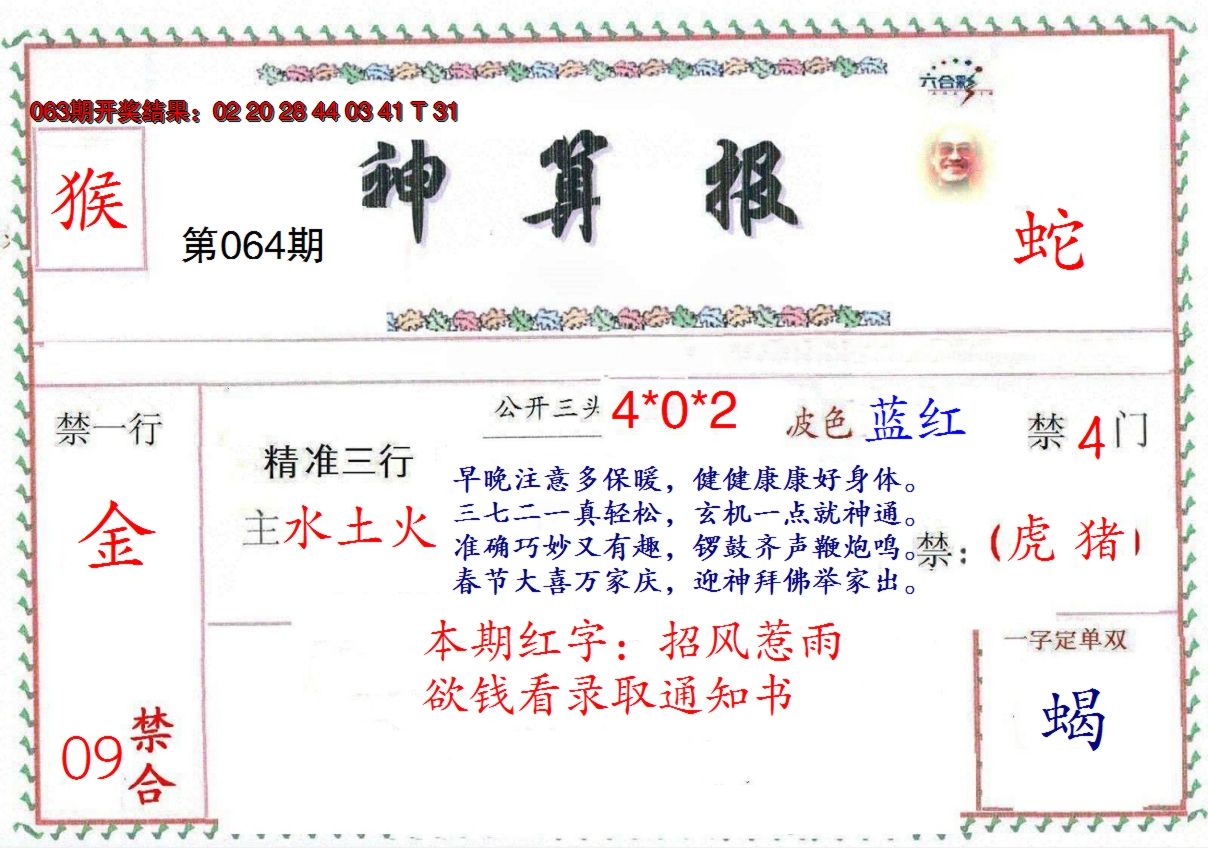 六合彩
063期开奖结果：02 20 28 44 03 41 T 31
神算报
猴
第064期
蛇
公开三头 4*0*2
波色 蓝红
禁一行
禁4门
精准三行
早晚注意多保暖，健健康康好身体。
主水土火
三七二一真轻松，玄机一点就神通。
金
准确巧妙又有趣，锣鼓齐声鞭炮鸣。
禁：（虎 猪）
春节大喜万家庆，迎神拜佛举家出。
本期红字：招风惹雨
一字定单双
欲钱看录取通知书
蝎
09
禁合